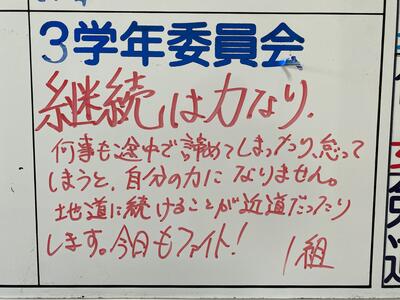 3学年委員会
継続は力なり.
何事も途中で諦めてしまったり、怠って
しまうと、自分の力になりません。
地道に続けることが近道だったり
します。今日もファイト!
1組